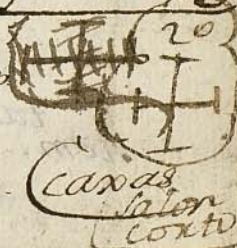 20
caxas
salon
conto